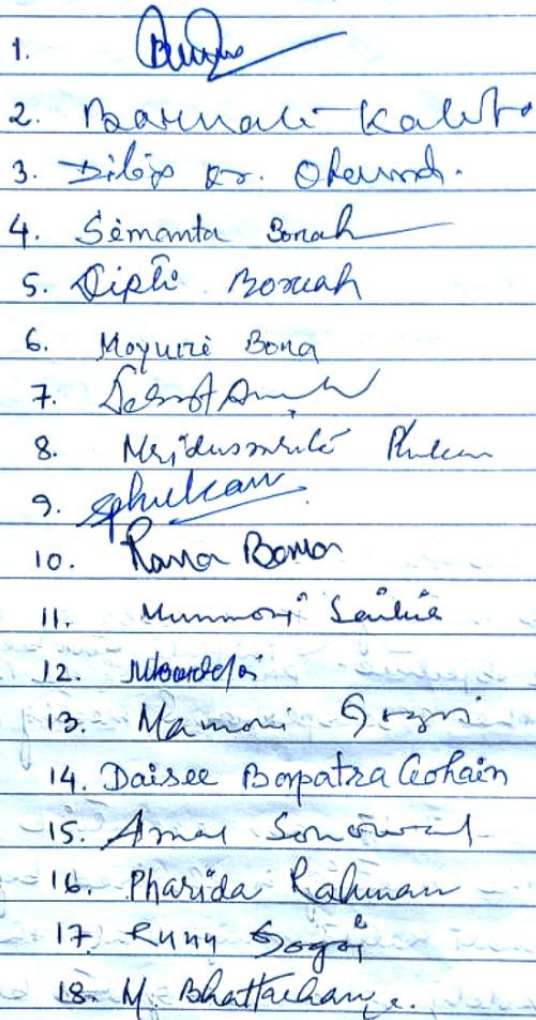 1.
2. Barnali Kalita
3. Dilip Kr.
4. Simanta Borah
5. Dipti Boruah
6. Moyuri Bora
7.
8. Mridusmrita Phukan
9. Sphukan
10. Rana Borua
11. Mummoni Saikia
12. Mbordoloi
13. Mamoni Gogoi
14. Daisee Borpatra Gohain
15. Amar Sonowal
16. Pharida Rahman
17. Runu Gogoi
18. M. Bhattacharya.